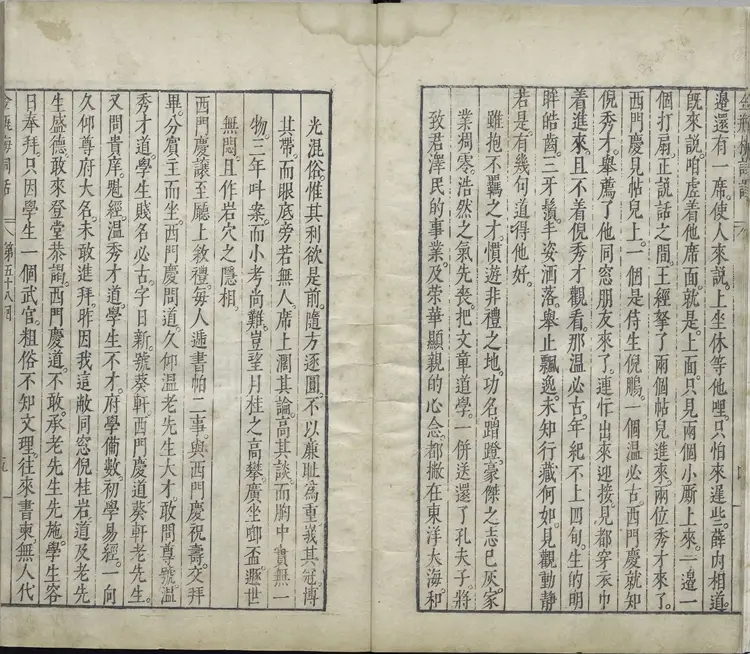 邊還有一席。使人來說。上坐休等他哩。只怕來遲些。薛內相道。
旣來說。咱虚着他席面就是。上面只見兩個小厮上來。一邊一
個打扇。正說話之間。王經拏了兩個帖兒進來。兩位秀才來了。
西門慶見帖兒上。一個是侍生倪鵬。一個温必古。西門慶就知
倪秀才。舉薦了他同窓朋友來了。連忙出來迎接。見都穿衣巾
着進來。且不看倪秀才。觀看那温必古。年紀不上四旬。生的明
眸皓齒。三牙鬚。丰姿洒落。舉止飄逸。未知行藏何如。見觀動静
若是。有幾句道得他好。
雖抱不羈之才。慣遊非禮之地。功名蹭蹬。豪傑之志已灰。家
業凋零。浩然之氣先䘮。把文章道學。一併送還了孔夫子。將
致君澤民的事業。及荣華顯親的心念。都撇在東洋大海。和
光混俗。惟其利欲是前。隨方逐圓。不以廉耻爲重。峩其冠。博
其帶。而眼底旁若無人。席上濶其論。高其談。而胸中實無一
物。三年叫案。而小考尚難。豈望月桂之高攀。廣坐啣盃。遯世
無悶。且作岩穴之隱相。
西門慶讓至廳上敘禮。每人遞書帕二事。與西門慶祝壽。交拜
畢。分賓主而坐。西門慶問道。久仰温老先生大才。敢問尊號。温
秀才道。學生賤名必古。字日新。號葵軒。西門慶道。葵軒老先生。
又問貴庠。魁經。温秀才道。學生不才。府學備數。初學易經。一向
久仰尊府大名。未敢進拜。昨因我這敝同窓倪桂岩道及老先
生盛德。敢來登堂恭謁。西門慶道。不敢。承老先生先施。學生容
日奉拜。只因學生一個武官。粗俗不知文理。往來書柬。無人代
第五十八回
五